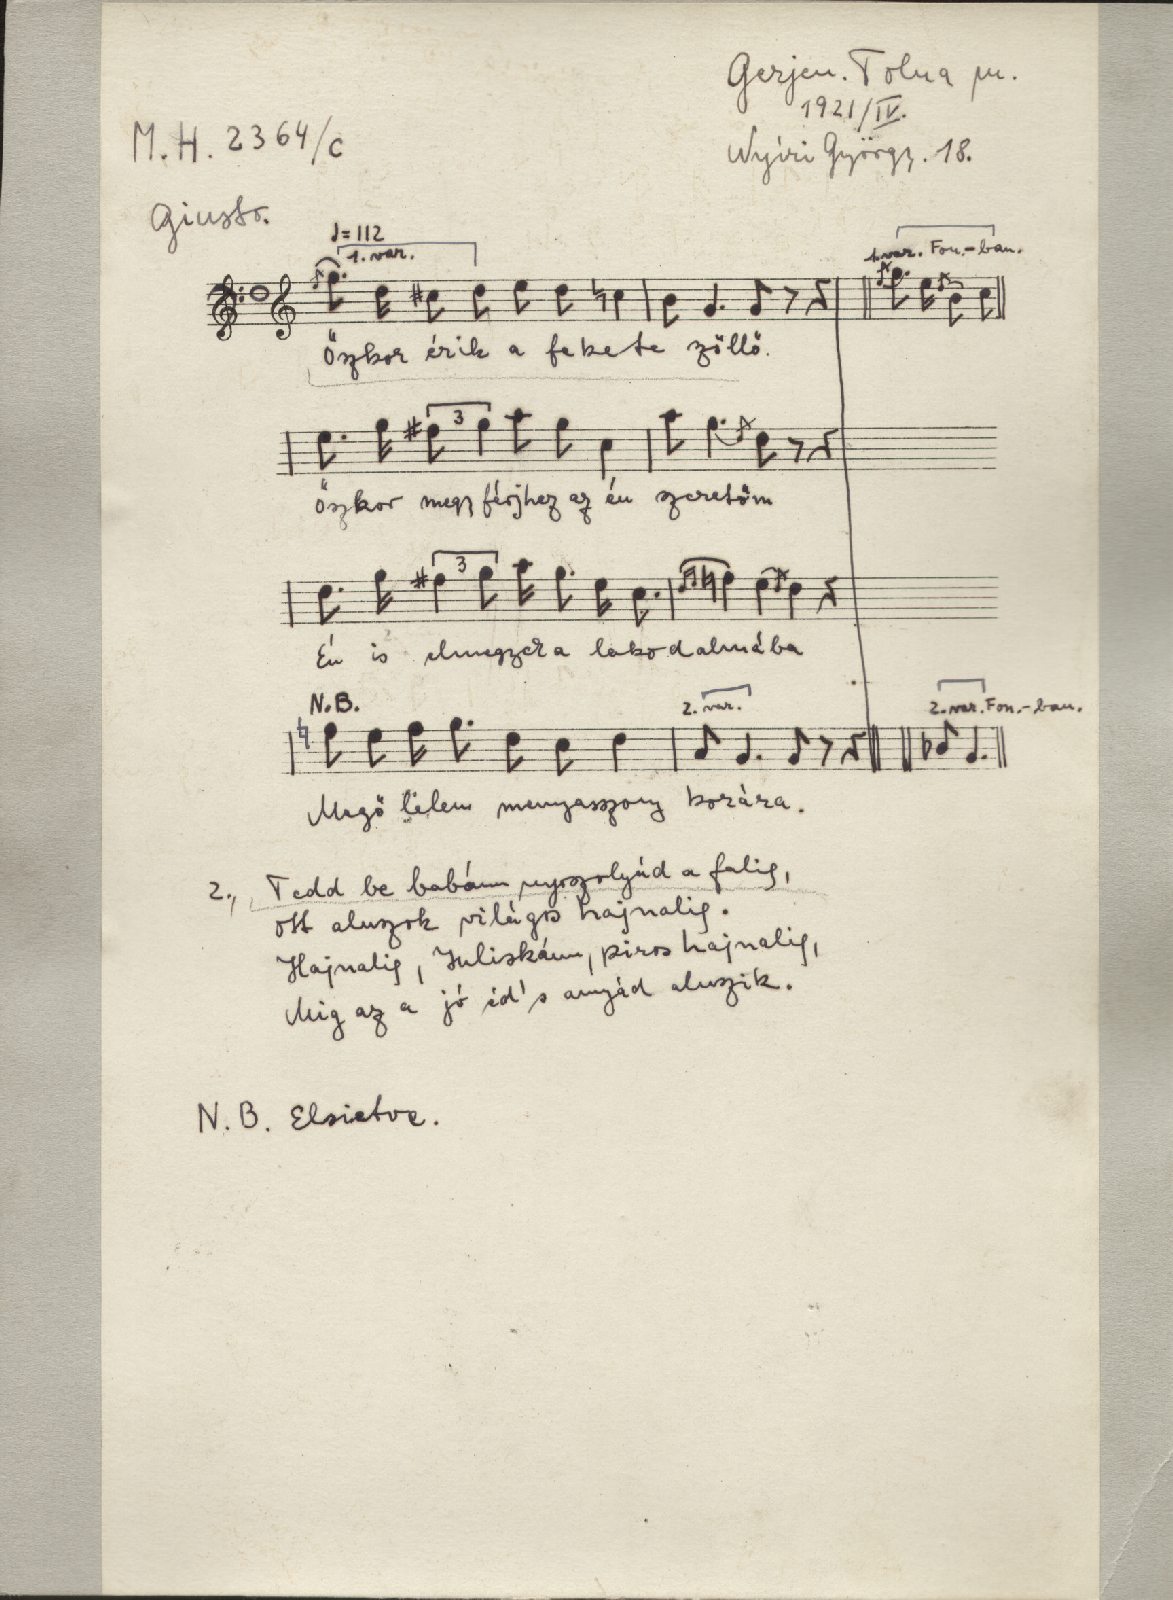 Gerjen. Tolna m.
1921/IV.
M.H. 2364/c
Nyíri György. 18.
Giusto.
♩=112
1. var.
1. var. Fon.-ban.
Őszkor érik a fekete szőllő.
3
Őszkor megy férjhez az én szeretőm
3
Én is elmegyek a lakodalmába
N.B.
2. var.
2. var. Fon.-ban.
Megölelem menyasszony korára.
2., Tedd be babám nyoszolyád a falig,
ott aluszok világos hajnalig.
Hajnalig, Juliskám, piros hajnalig,
Mig az a jó id's anyád aluszik.
N.B. Elsietve.